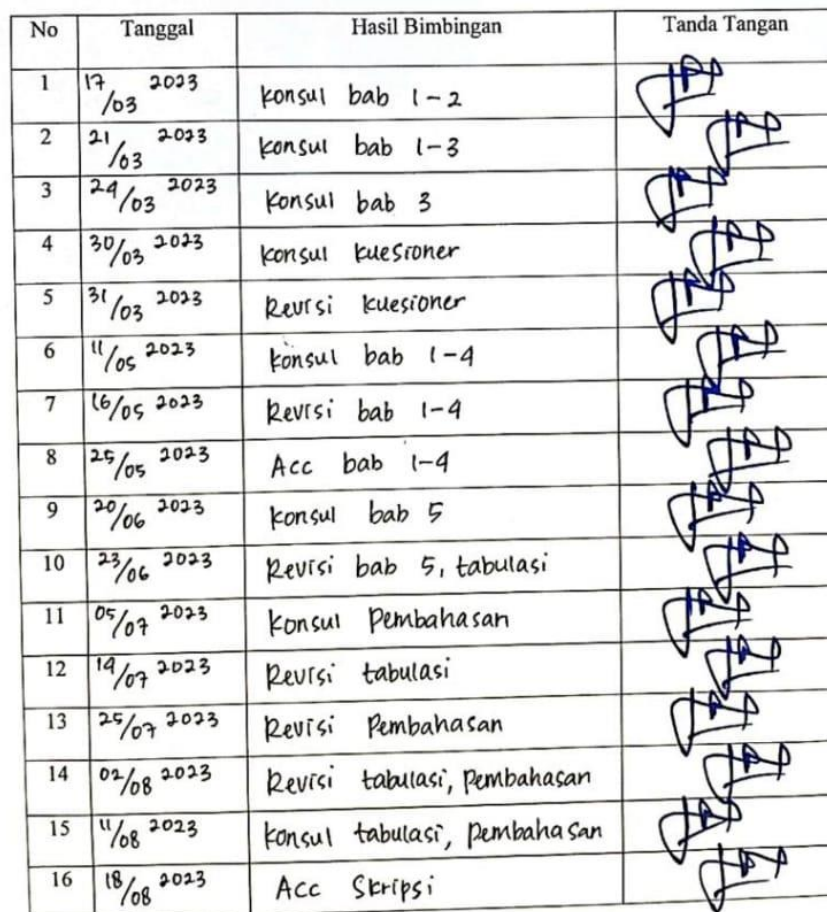 No Tanggal Hasil Bimbingan Tanda Tangan
1 17/03 2023 Konsul bab 1-2
2 21/03 2023 Konsul bab 1-3
3 29/03 2023 Konsul bab 3
4 30/03 2023 Konsul kuesioner
5 31/03 2023 Revisi kuesioner
6 11/05 2023 Konsul bab 1-4
7 16/05 2023 Revisi bab 1-4
8 25/05 2023 Acc bab 1-4
9 20/06 2023 Konsul bab 5
10 23/06 2023 Revisi bab 5, tabulasi
11 05/07 2023 Konsul Pembahasan
12 19/07 2023 Revisi tabulasi
13 25/07 2023 Revisi Pembahasan
14 02/08 2023 Revisi tabulasi, Pembahasan
15 11/08 2023 Konsul tabulasi, Pembahasan
16 18/08 2023 Acc Skripsi